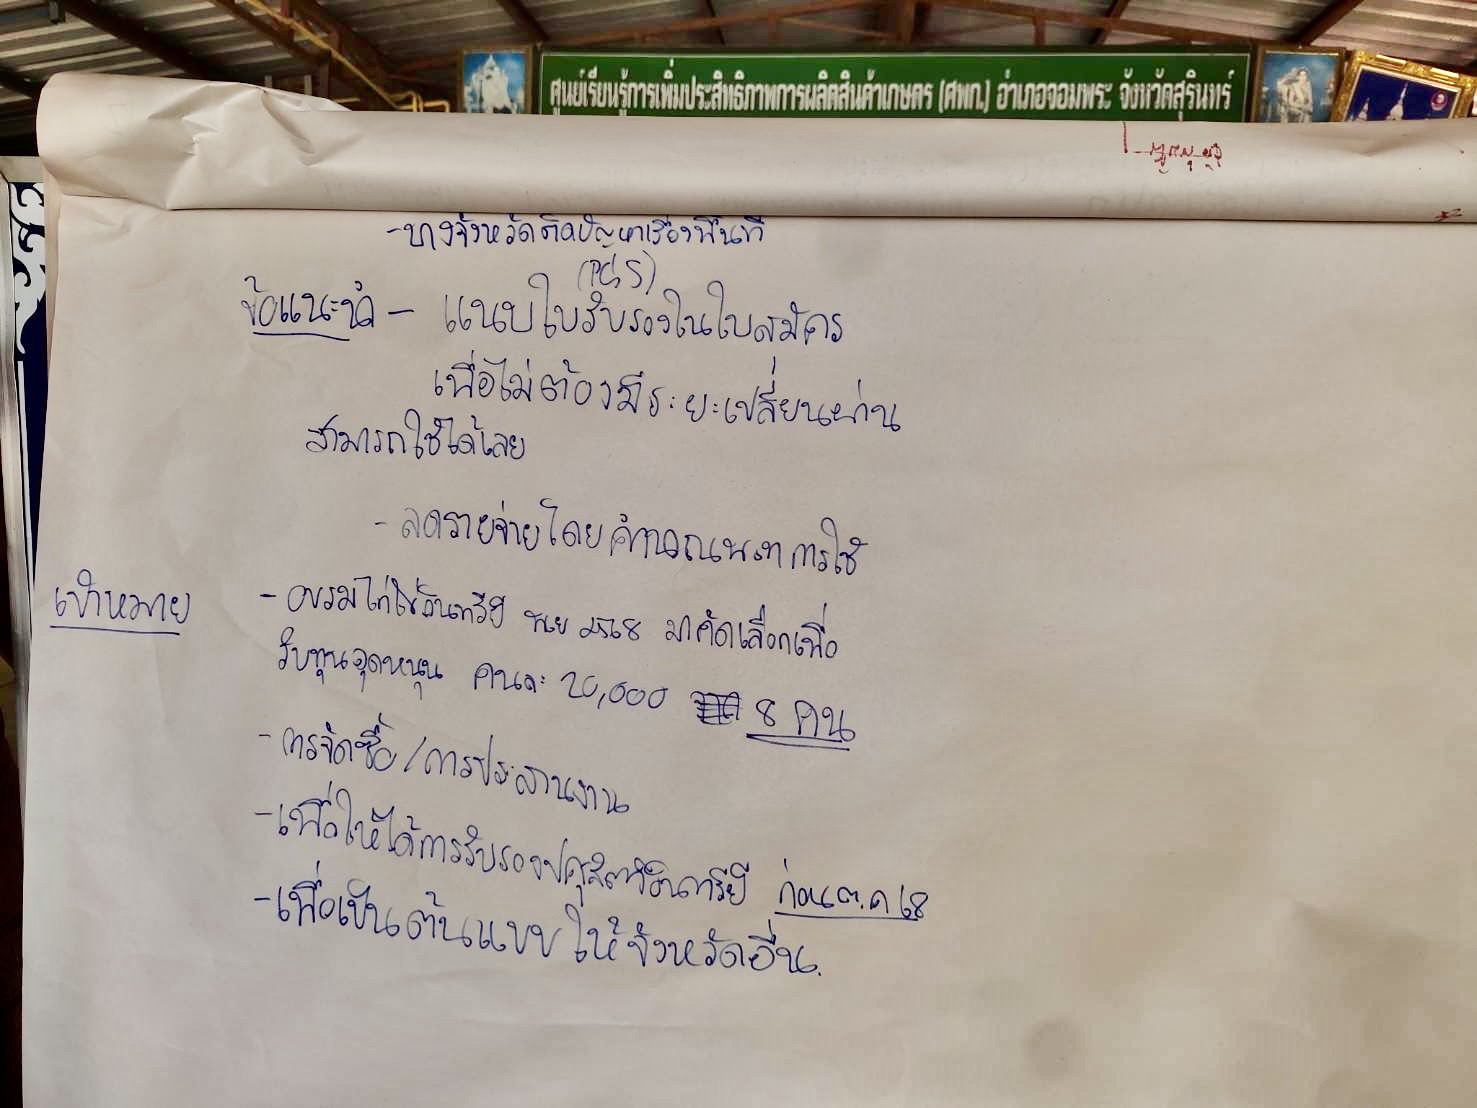 ศูนย์เรียนรู้การเพิ่มประสิทธิภาพการผลิตสินค้าเกษตร (ศพก.) อำเภอจอมพระ จังหวัดสุรินทร์
- บางจังหวัดติดปัญหาเรื่องพื้นที่
ข้อแนะนำ - แนบใบรับรองในใบสมัคร
เพื่อไม่ต้องมีระยะเปลี่ยนผ่าน
สามารถใช้ได้เลย
- ลดรายจ่ายโดยคำนวณ การใช้
เป้าหมาย - อบรมไก่ไข่อินทรีย์ 2568 มาคัดเลือกเพื่อ
รับทุนอุดหนุน คนละ 20,000 8 คน
- การจัดซื้อ/การประสานงาน
- เพื่อให้ได้การรับรองปศุสัตว์อินทรีย์ ก่อน ต.ค 68
- เพื่อเป็นต้นแบบให้จังหวัดอื่น.